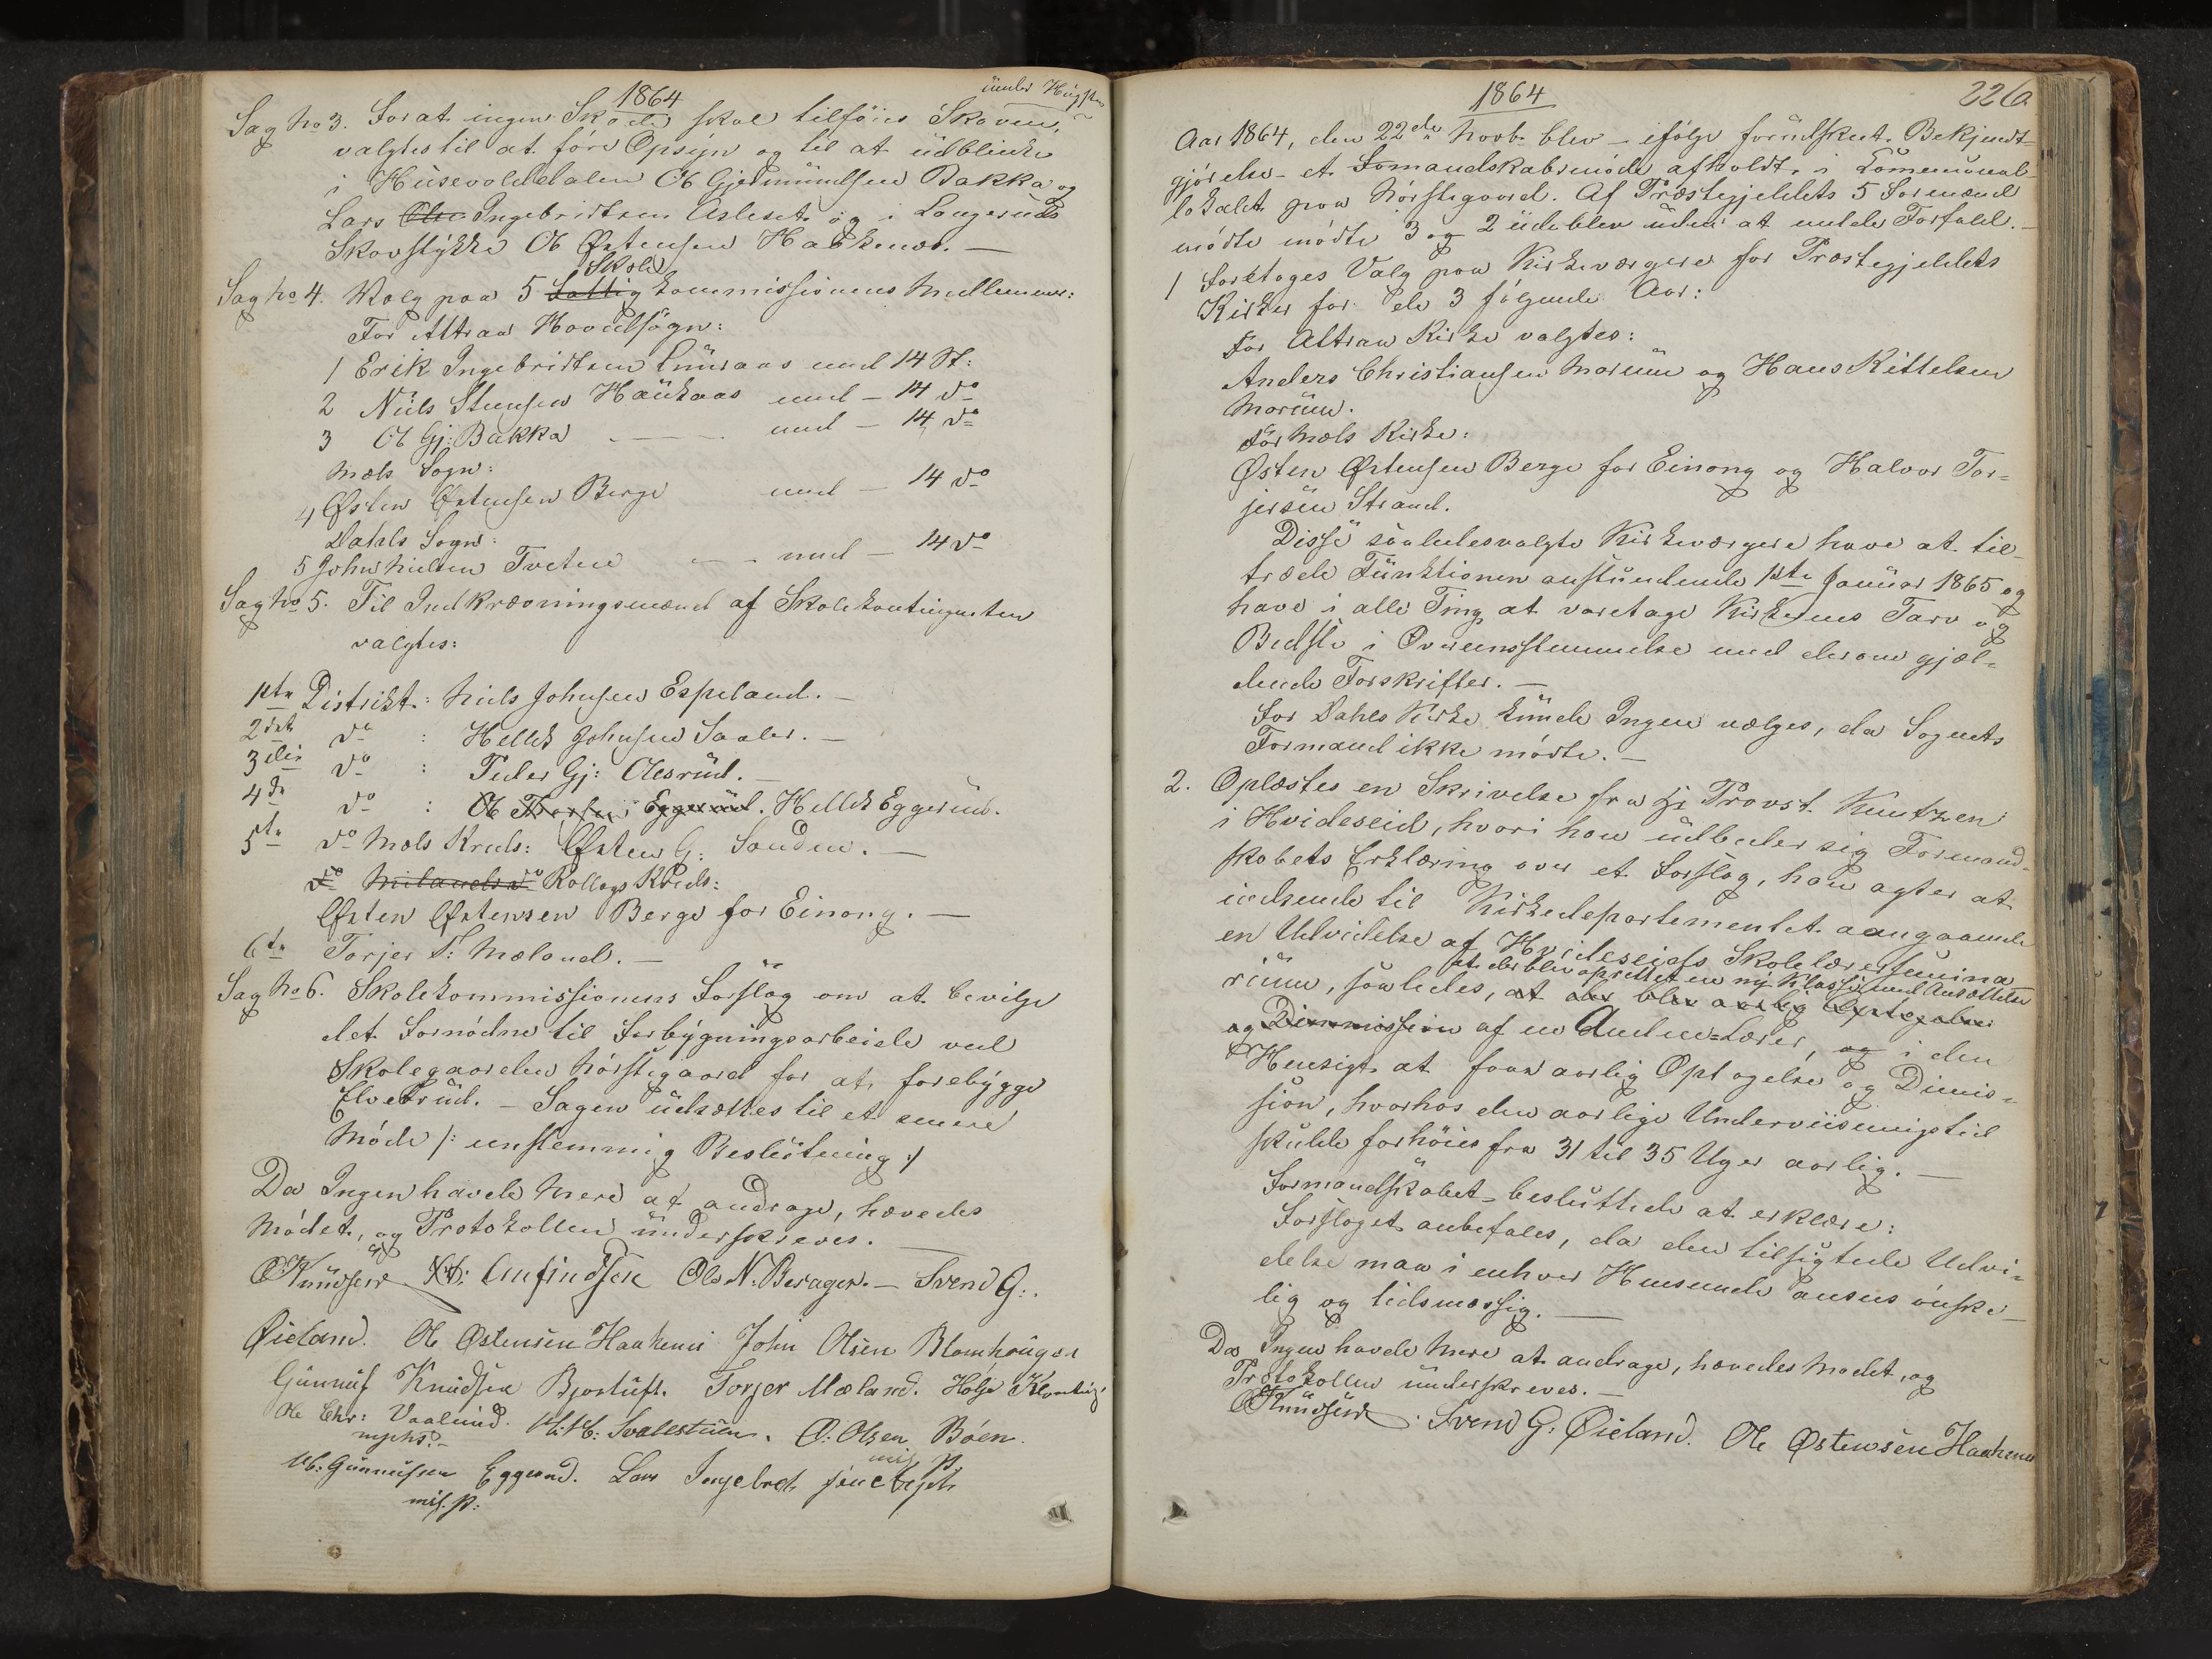 1864
under Hugsten
Sag No 3. For at ingen Skade skal tilføies Skoven,
valgtes til at føre Opsyn og til at udblinke
i Husevolddalen Ol Gjermundsen Bakka og
Lars Ole Ingebridtsen Asleset og i
Skovstykke Ol Østensen Haakenæs. —
Skole
Sag No 4. Valg paa 5 Fattigkommissionens Medlemmer:
For Attraa Hovedsogn:
1 Erik Ingebridtsen Luraas med 14 St:
2 Niels Stensen Haukaas med – 14 do
3 Ol Gj: Bakka – med – 14 do
Mæls Sogn:
4 Østen Østensen Berge med – 14 do
Dahls Sogn:
5 John Nielsen Tveten – med – 14 do
Sag No 5. Til Indkrævningsmænd af Skolekontingenten
valgtes:
1ste Distrikt: Niels Johnsen Espeland. —
2det do : Hellek Johnsen Saaler. —
3die do : Peder Gj: Olesrud. —
4de do : Ol Eggerud. Hellek Eggerud.
5te do Mæls Kreds: Østen G: Sanden. —
do do Kollogs Kreds:
Østen Østensen Berge for Einong. —
6te Torjer T: Mæland. —
Sag No 6. Skolekommissionens Forslag om at bevilge
det Fornødne til Forbygningsarbeide ved
Skolegaarden Nørstegaard for at forebygge
Elvebrud. – Sagen udsættes til et senere
Møde /: enstemmig Beslutning :/
Da Ingen havde Mere at andrage, hævedes
Mødet, og Protokollen underskreves. —
O Knudsen Anfindsen Ole N. Berager. – Svend G:
Øieland. Ole Østensen Haakenæs John Olsen Blomhaugen
Gunnuf Knudsen Bjortuft. Torjer Mæland. Holje
Ole Chr: Vaalund. H. H: Svalestuen. O: Olsen Bøen.
H: Gunnufsen Eggerud. Lars Ingebret
m. p:
1864
226
Aar 1864, den 22de Novb. blev – ifølge forudskeet Bekjendt-
gjørelse – et Formandskabsmøde afholdt i Kommunal-
lokalet paa Nørstegaard. Af Præstegjeldets 5 Formænd
mødte mødte 3 og 2 udeblev uden at melde Forfald. –
1 Foretoges Valg paa Kirkeværgere for Præstegjeldets
Kirker for de 3 følgende Aar:
For Attraa Kirke valgtes:
Anders Christiansen Moruen og Hans Kittelsen
Moruen.
For Mæls Kirke:
Østen Østensen Berge for Einong og Halvor Tor-
jersen Strand.
Disse saaledesvalgte Kirkeværgere have at til-
træde Funktionen anstundende 1ste Januar 1865 og
have i alle Ting at varetage Kirkernes Tarv og
Bedste i Overeensstemmelse med derom gjæl-
dende Forskrifter. —
For Dahls Kirke kunde Ingen vælges, da Sognets
Formand ikke mødte. —
2. Oplæstes en Skrivelse fra Hr Provst Knutzen
i Hvideseid, hvori han udbeder sig Formand-
skabets Erklæring over et Forslag, han agter at
indsende til Kirkedepartementet aangaaende
en Udvidelse af Hvideseids Skolelærersemina-
at der blev oprettet en ny Klasse med Ansættelse
rium, saaledes, at der blev aarlig Optagelse
og Dimmission af en Anden-Lærer, og i den
Hensigt at faae aarlig Optagelse og Dimis-
sion, hvorhos den aarlige Underviisningstid
skulde forhøies fra 31 til 35 Uger aarlig. —
Formandskabet besluttede at erklære:
Forslaget anbefales, da den tilsigtede Udvi-
delse maa i enhver Henseende ansees ønske-
lig og tidsmæssig. —
Da Ingen havde Mere at andrage, hævedes Mødet, og
Protokollen underskreves. —
O Knudsen. Svend G: Øieland. Ole Østensen Haakenæs